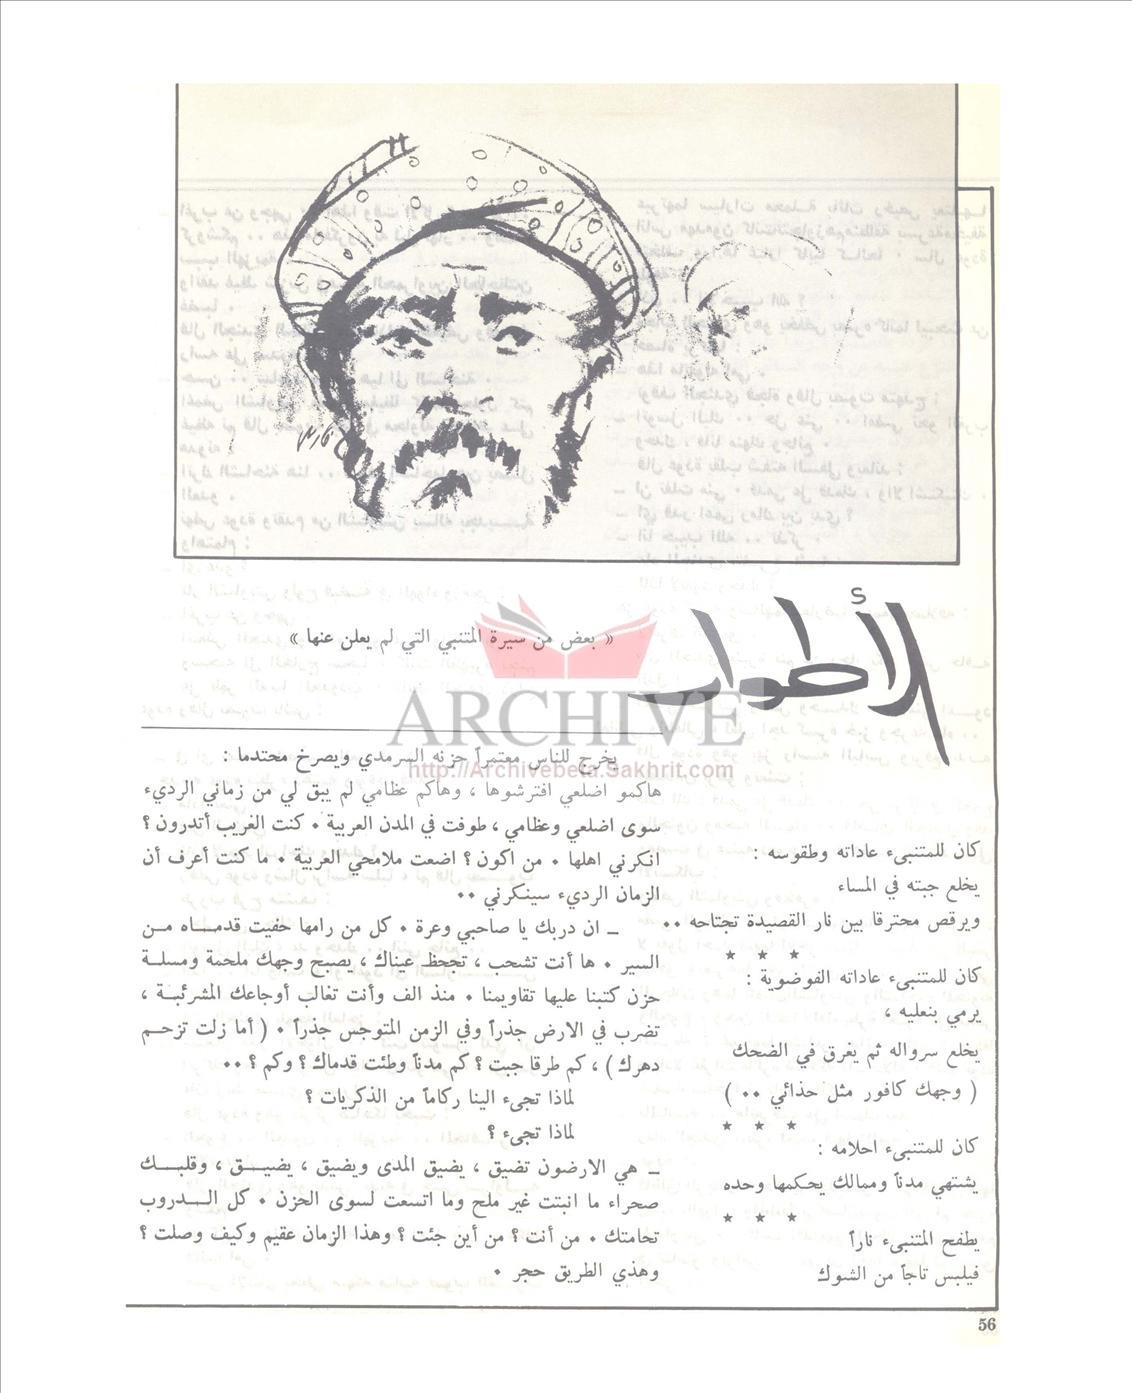 الأطوار
« بعض من سيرة المتنبي التي لم يعلن عنها »
ARCHIVE
http://Archivebeta.Sakhrit.com
كان للمتنبىء عاداته وطقوسه :
يخلع جبته في المساء
ويرقص محترقا بين نار القصيدة تجتاحه ٠٠
★ ★ ★
كان للمتنبىء عاداته الفوضوية :
يرمي بنعليه ،
يخلع سرواله ثم يغرق في الضحك
( وجهك كافور مثل حذائي ٠٠ )
★ ★ ★
كان للمتنبىء احلامه :
يشتهي مدناً وممالك يحكمها وحده
★ ★ ★
يطفح المتنبىء ناراً
فيلبس تاجاً من الشوك
يخرج للناس معتمراً حزنه السرمدي ويصرخ محتدما :
هاكمو اضلعي افترشوها ، وهاكم عظامي لم يبق لي من زماني الرديء
سوى اضلعي وعظامي ، طوفت في المدن العربية ٠ كنت الغريب أتدرون ؟
انكرني اهلها ٠ من اكون ؟ اضعت ملامحي العربية ٠ ما كنت أعرف أن
الزمان الرديء سينكرني ٠٠
ـ ان دربك يا صاحبي وعرة ٠ كل من رامها حفيت قدمـاه مـن
السير ٠ ها أنت تشحب ، تجحظ عيناك ، يصبح وجهك ملحمة ومسلـة
حزن كتبنا عليها تقاويمنا ٠ منذ الف وأنت تغالب أوجاعك المشرئبـة ،
تضرب في الارض جذراً وفي الزمن المتوجس جذراً ٠ ( أما زلت تزحـم
دهرك ) ، كم طرقا جبت ؟ كم مدناً وطئت قدماك ؟ وكم ؟ ٠٠
لماذا تجيء الينا ركاماً من الذكريات ؟
لماذا تجيء ؟
ـ هي الارضون تضيق ، يضيق المدى ويضيق ، يضيـــق ، وقلبــك
صحراء ما انبتت غير ملح وما اتسعت لسوى الحزن ٠ كل الــدروب
تحامتك ٠ من أنت ؟ من أين جئت ؟ وهذا الزمان عقيم وكيف وصلت ؟
وهذي الطريق حجر ٠
56